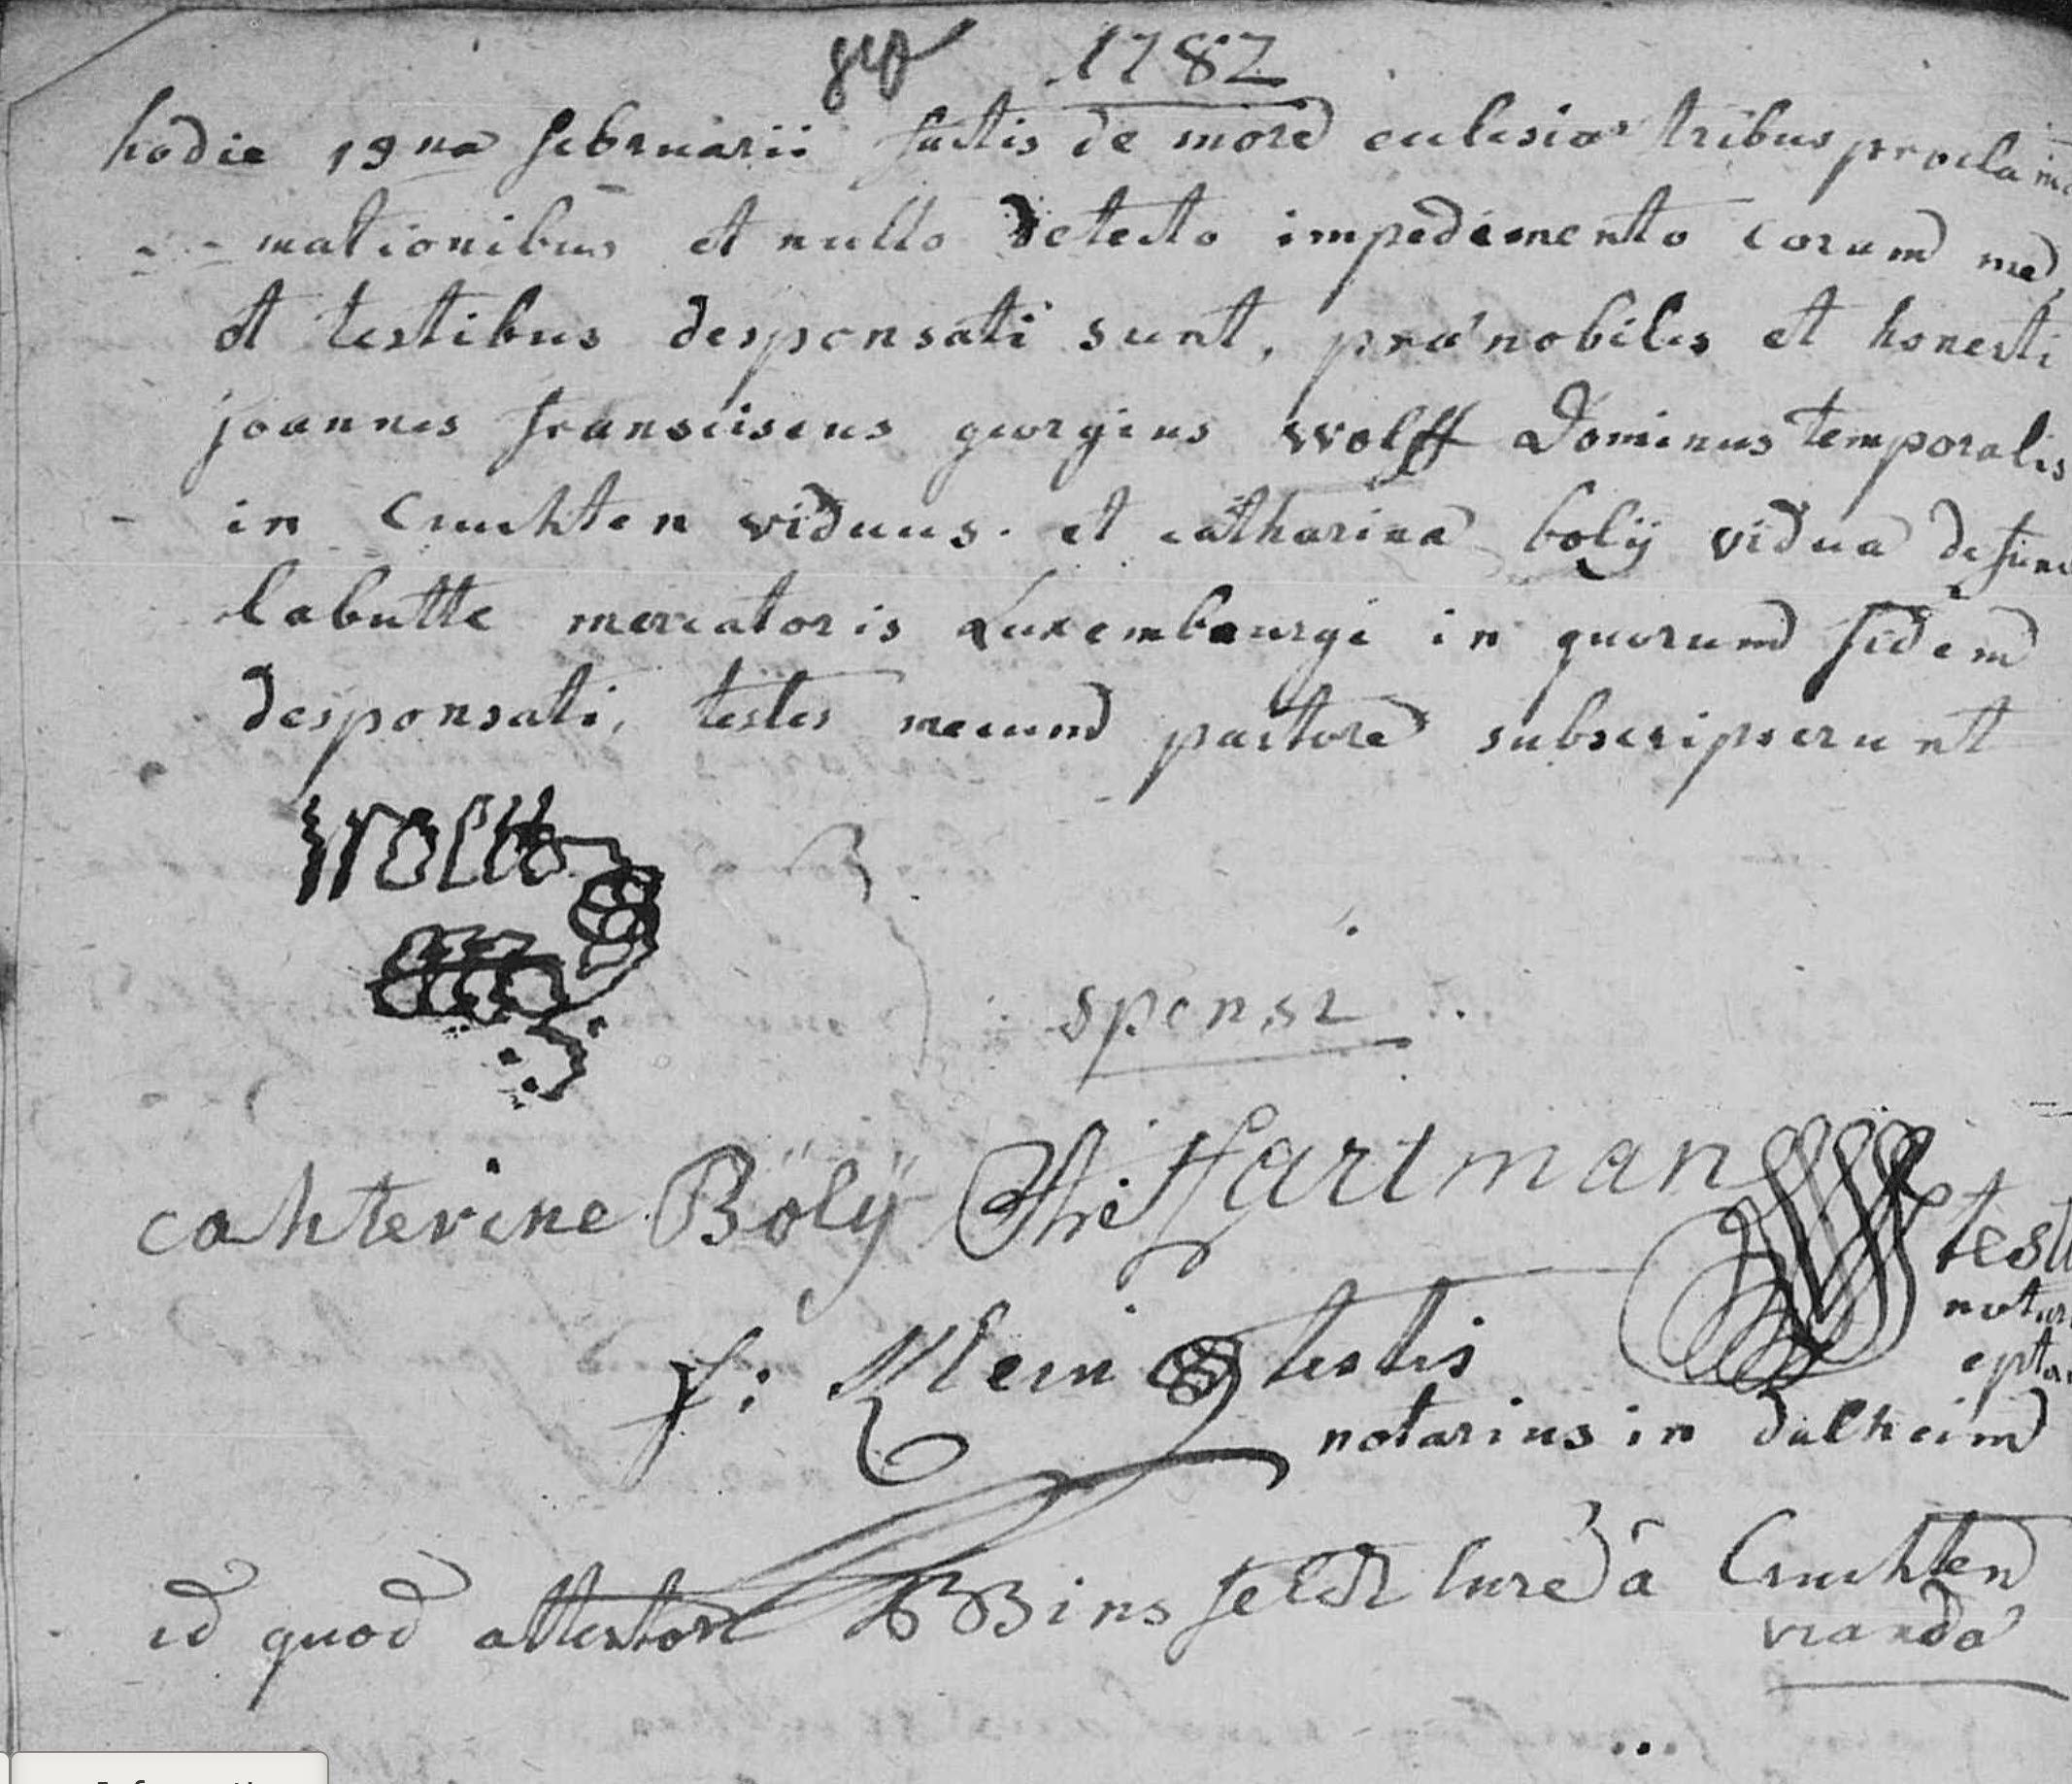 1782
hodie 19na februarii factis de more eculesiae tribus procla
mationibus et nullo detecto impedimento coram me
et testibus desponsati sunt, praenobiles et honesti
joannes fransciscus georgius wolff Dominus temporalis
in Cruchten viduus. et catharina bolÿ vidua defunc
labutte mercatoris Luxembourgi in quorum fidem
desponsati, testes mecum pastore subscripserunt
Wolff
sponsi
cahterine Bölÿ Hartman
testi
f: Klein testis
notarius in dalheim
id quod attestor Binsfeldt Cure à Cruchten